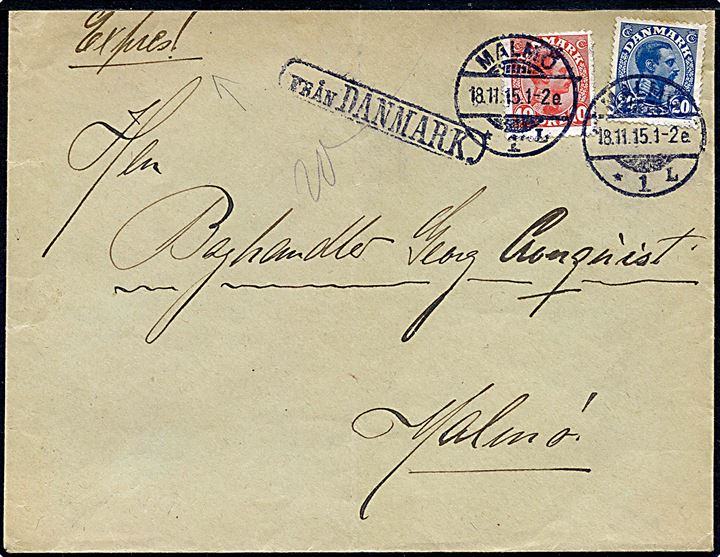 Expres!
FRÅN DANMARK.
MALMÖ
18.11.15.1-2e.
* 1 L
DANMARK
10 ØRE 10
DANMARK
20
MALMÖ
18.11.15.1-2e.
* 1 L
20
Herr
Boghandler Georg Cronquist
Malmø.